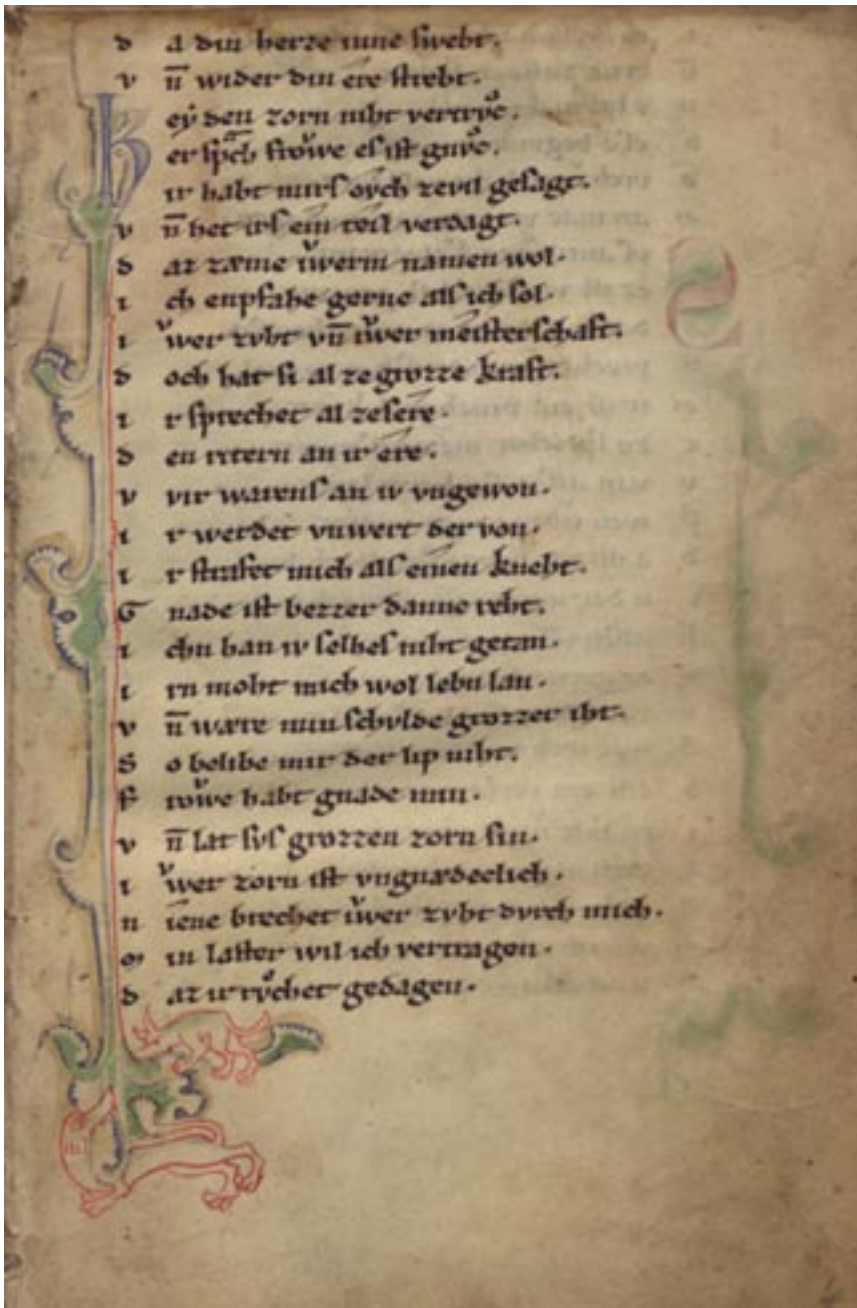 d a din herze inne swebt.
v n̄ wider din ere strebt.
K eẏ den zorn niht vertrvͦc.
er sprach frowͮe es ist gnvͦc.
ir habt mirs ovch zevil gesagt.
v n̄ het irs ein teil verdagt.
d az zæme iwͮerm namen wol.
i ch enpfahe gerne als ich sol.
i wͮer zvht vn̄ iwͮer meisterschaft.
d och hat si al ze grozze kraft.
i r sprechet al ze sere.
d en ritern an ir ere.
v vir warens an iv vngewon.
i r werdet vnwert der von.
i r strafet mich als einen kneht.
G nade ist bezzer danne reht.
i chn han iv selbes niht getan.
i rn moht mich wol lebn lan.
v n̄ wære min schvlde grozzer iht.
S o belibe mir der lip niht.
f rowͮe habt gnade min.
v n̄ lat svs grozzen zorn sin.
i wͮer zorn ist vngnædeclich.
n iene brechet iwͮer zvht dvrch mich.
m in laster wil ich vertragen.
d az ir rvͦchet gedagen.